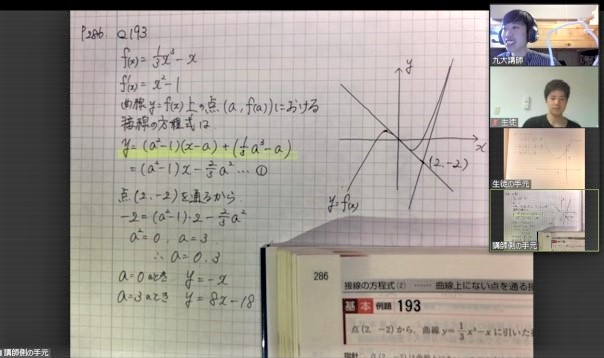 P286 Q193
f(x) = 1/3 x³ - x
f'(x) = x² - 1
曲線 y=f(x) 上の点 (a, f(a)) における
接線の方程式は
y = (a²-1)(x-a) + (1/3 a³-a)
= (a²-1)x - 2/3 a² … ①
点(2,-2)を通るから
-2 = (a²-1)・2 - 2/3 a²
a² = 0, a = 3
∴ a = 0, 3
a=0のとき y = -x
a=3のとき y = 8x-18
y
x
(2,-2)
y=f(x)
286
接線の方程式(2) …… 曲線上にない点を通る接
基本 例題 193
点(2, -2)から, 曲線 y=1/3 x³-x に引いた接
指針
九大講師
生徒
生徒の手元
講師側の手元
講師側の手元